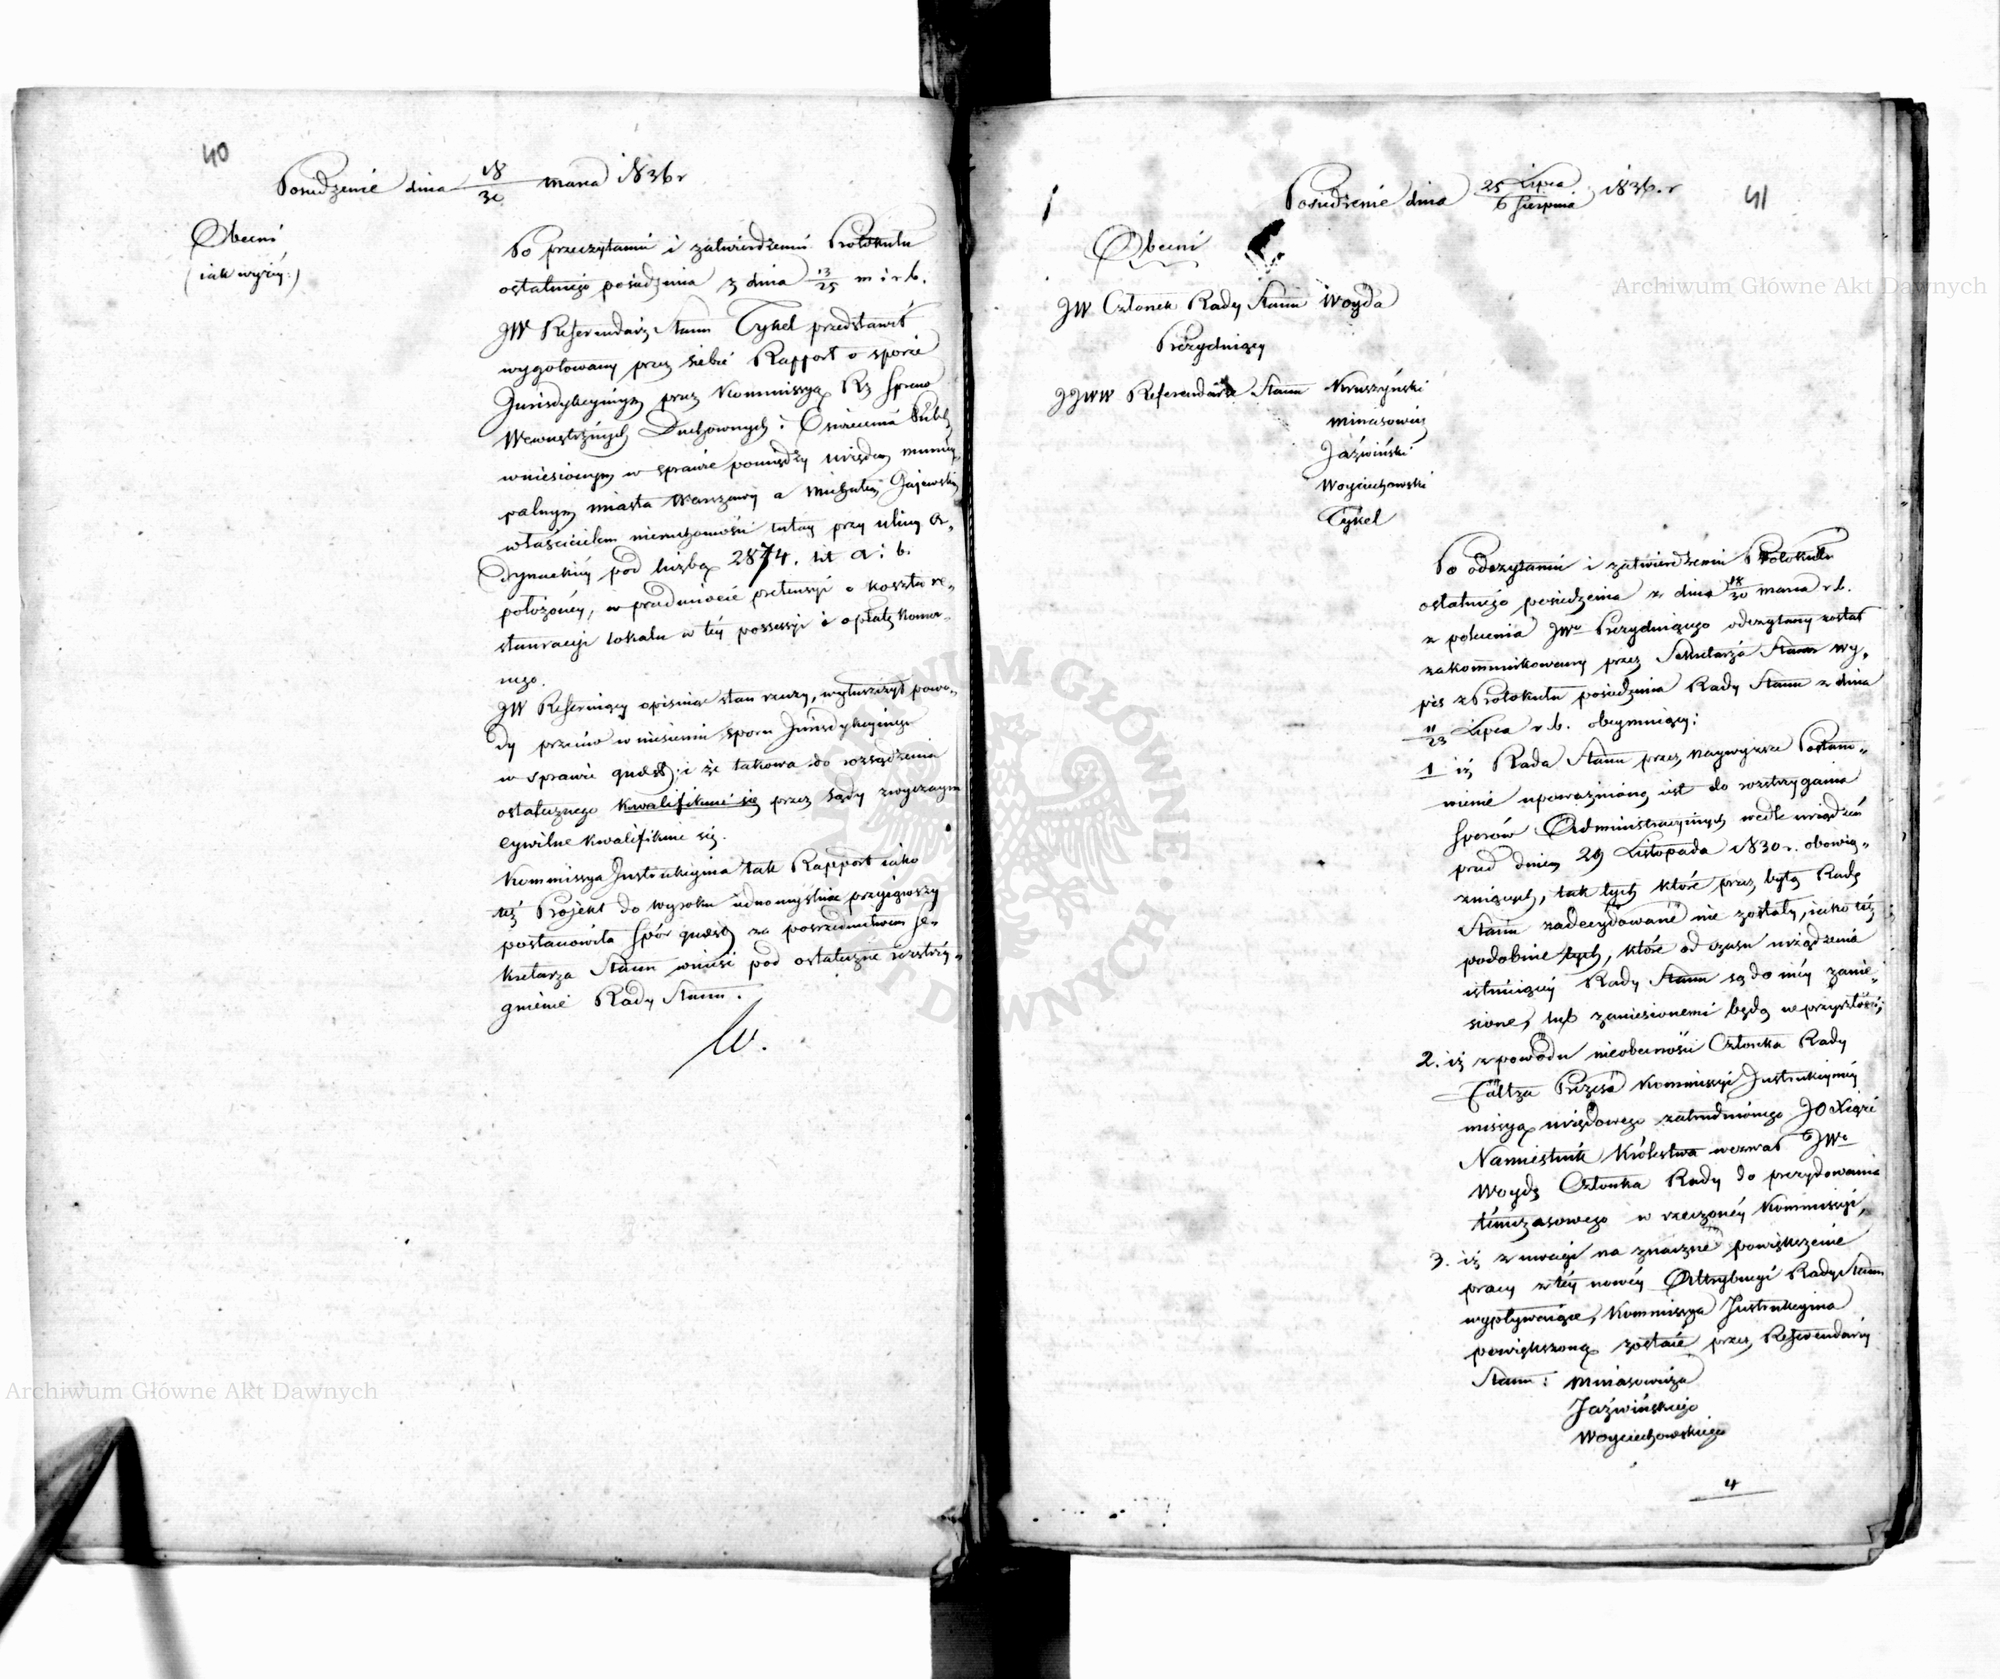 40
Posiedzenie dnia 18/30 marca 1836 r
Obecni
(iak wyżéy:)
Po przeczytaniu i zatwierdzeniu Protokułu
ostatniego posiedzenia z dnia 13/25 m i r b.
JW Referendarz Stanu Tykel przedstawił
wygotowany przez siebie Rapport o sporze
Jurisdykcyinym przez Kommissyą Rz Spraw
Wewnętrznych Duchownych i Oświecenia Publ.
wniesionym w sprawie pomiędzy urzędem munic͏y-
palnym miasta Warszawy a Michałem Gajewskim
właścicielem nieruchomości tutay przy ulicy Or-
dynackiey pod liczbą 2874. lit a. i b.
położoney, w przedmiocie pretensyi o koszta re-
stauracyi lokalu w tey possessyi i opłatę komor-
nego.
JW Referuiący opisuiąc stan rzeczy, wyłuszczył powo-
dy przeciw wniesieniu sporu Jurisdykcyinego
w sprawie quest: i że takowa do rozsądzenia
ostatecznego kwalifikuie się przez Sądy zwyczayne
cywilne kwalifikuie się.
Kommissya Instrukcyina tak Rapport iako
też Projekt do wyroku iednomyślnie przyiąwszy
postanowiła Spór quest za pośrednictwem Se-
kretarza Stanu wnieść pod ostateczne rozstrzy-
gnienie Rady Stanu.
W.
Posiedzenie dnia 25 Lipca/6 Sierpnia 1836. r
41
Obecni
JW Członek Rady Stanu Woyda
Prezyduiący
JJWW Referendarze Stanu Kruszyński
Minasowicz
Jaźwiński
Woyciechowski
Tykel
Po odczytaniu i zatwierdzeniu Protokułu
ostatniego posiedzenia z dnia 18/30 marca r b.
z polecenia JWo Prezyduiącego odczytany został
zakommunikowany przez Sekretarza Stanu wy-
pis z Protokułu posiedzenia Rady Stanu z dnia
11/23 Lipca r. b. obeymuiący:
1 iż Rada Stanu przez Naywyższe Postano-
wienie upoważnioną iest do rozstrzygania
Sporów Administracyinych wedle urządzeń
przed dniem 29 Listopada 1830 r. obowią-
zuiących, tak tych które przez byłą Radę
Stanu zadecydowane nie zostały, iako też
podobnie tych, które od czasu urządzenia
istnieiącey Rady Stanu są do niey zanie-
sione, lub zaniesionemi będą w przyszłości;
2. iż z powodu nieobecności Członka Rady
Faltza Prezesa Kommissyi Instrukcyiney
missyą urzędowego zatrudnionego JO Xiąże
Namiestnik Królestwa wezwał JWo
Woydę Członka Rady do prezydowania
tymczasowego w rzeczoney Kommissyi,
3. iż z uwagi na znaczne powiększenie
pracy z tey nowey Attrybucyi Rady Stanu
wypływaiące, Kommissya Instrukcyina
powiększoną zostaie przez Referendarzy
Stanu: Minasowicza
Jaźwińskiego
Woyciechowskiego
4
Archiwum Główne Akt Dawnych
Archiwum Główne Akt Dawnych
ARCHIWUM GŁÓWNE AKT DAWNYCH